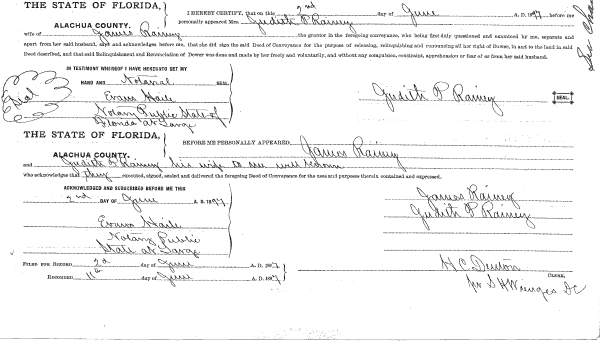 THE STATE OF FLORIDA,
ALACHUA COUNTY.
I HEREBY CERTIFY, that on this 2nd day of June A. D. 1897 before me
personally appeared Mrs. Judith P Rainey
wife of James Rainey the grantor in the foregoing conveyance, who being first duly questioned and examined by me, separate and
apart from her said husband, says and acknowledges before me, that she did sign the said Deed of Conveyance for the purpose of releasing, relinquishing and renouncing all her right of Dower, in and to the land in said
Deed described, and that said Relinquishment and Renunciation of Dower was done and made by her freely and voluntarily, and without any compulsion, constraint, apprehension or fear of or from her said husband.
IN TESTIMONY WHEREOF I HAVE HEREUNTO SET MY
HAND AND Notarial SEAL
Seal
Evans Haile
Notary Public State of
Florida at Large
Judith P Rainey
SEAL
THE STATE OF FLORIDA,
ALACHUA COUNTY.
BEFORE ME PERSONALLY APPEARED James Rainey
and Judith P Rainey his wife to me well known
who acknowledges that they executed, signed, sealed and delivered the foregoing Deed of Conveyance for the uses and purposes therein contained and expressed.
ACKNOWLEDGED AND SUBSCRIBED BEFORE ME THIS
2nd DAY OF June A. D. 1897
Evans Haile
Notary Public
State at Large
James Rainey
Judith P Rainey
FILED FOR RECORD 2d day of June A. D. 1897
RECORDED 11th day of June 1897
H C Denton
CLERK.
per S H Wienges DC